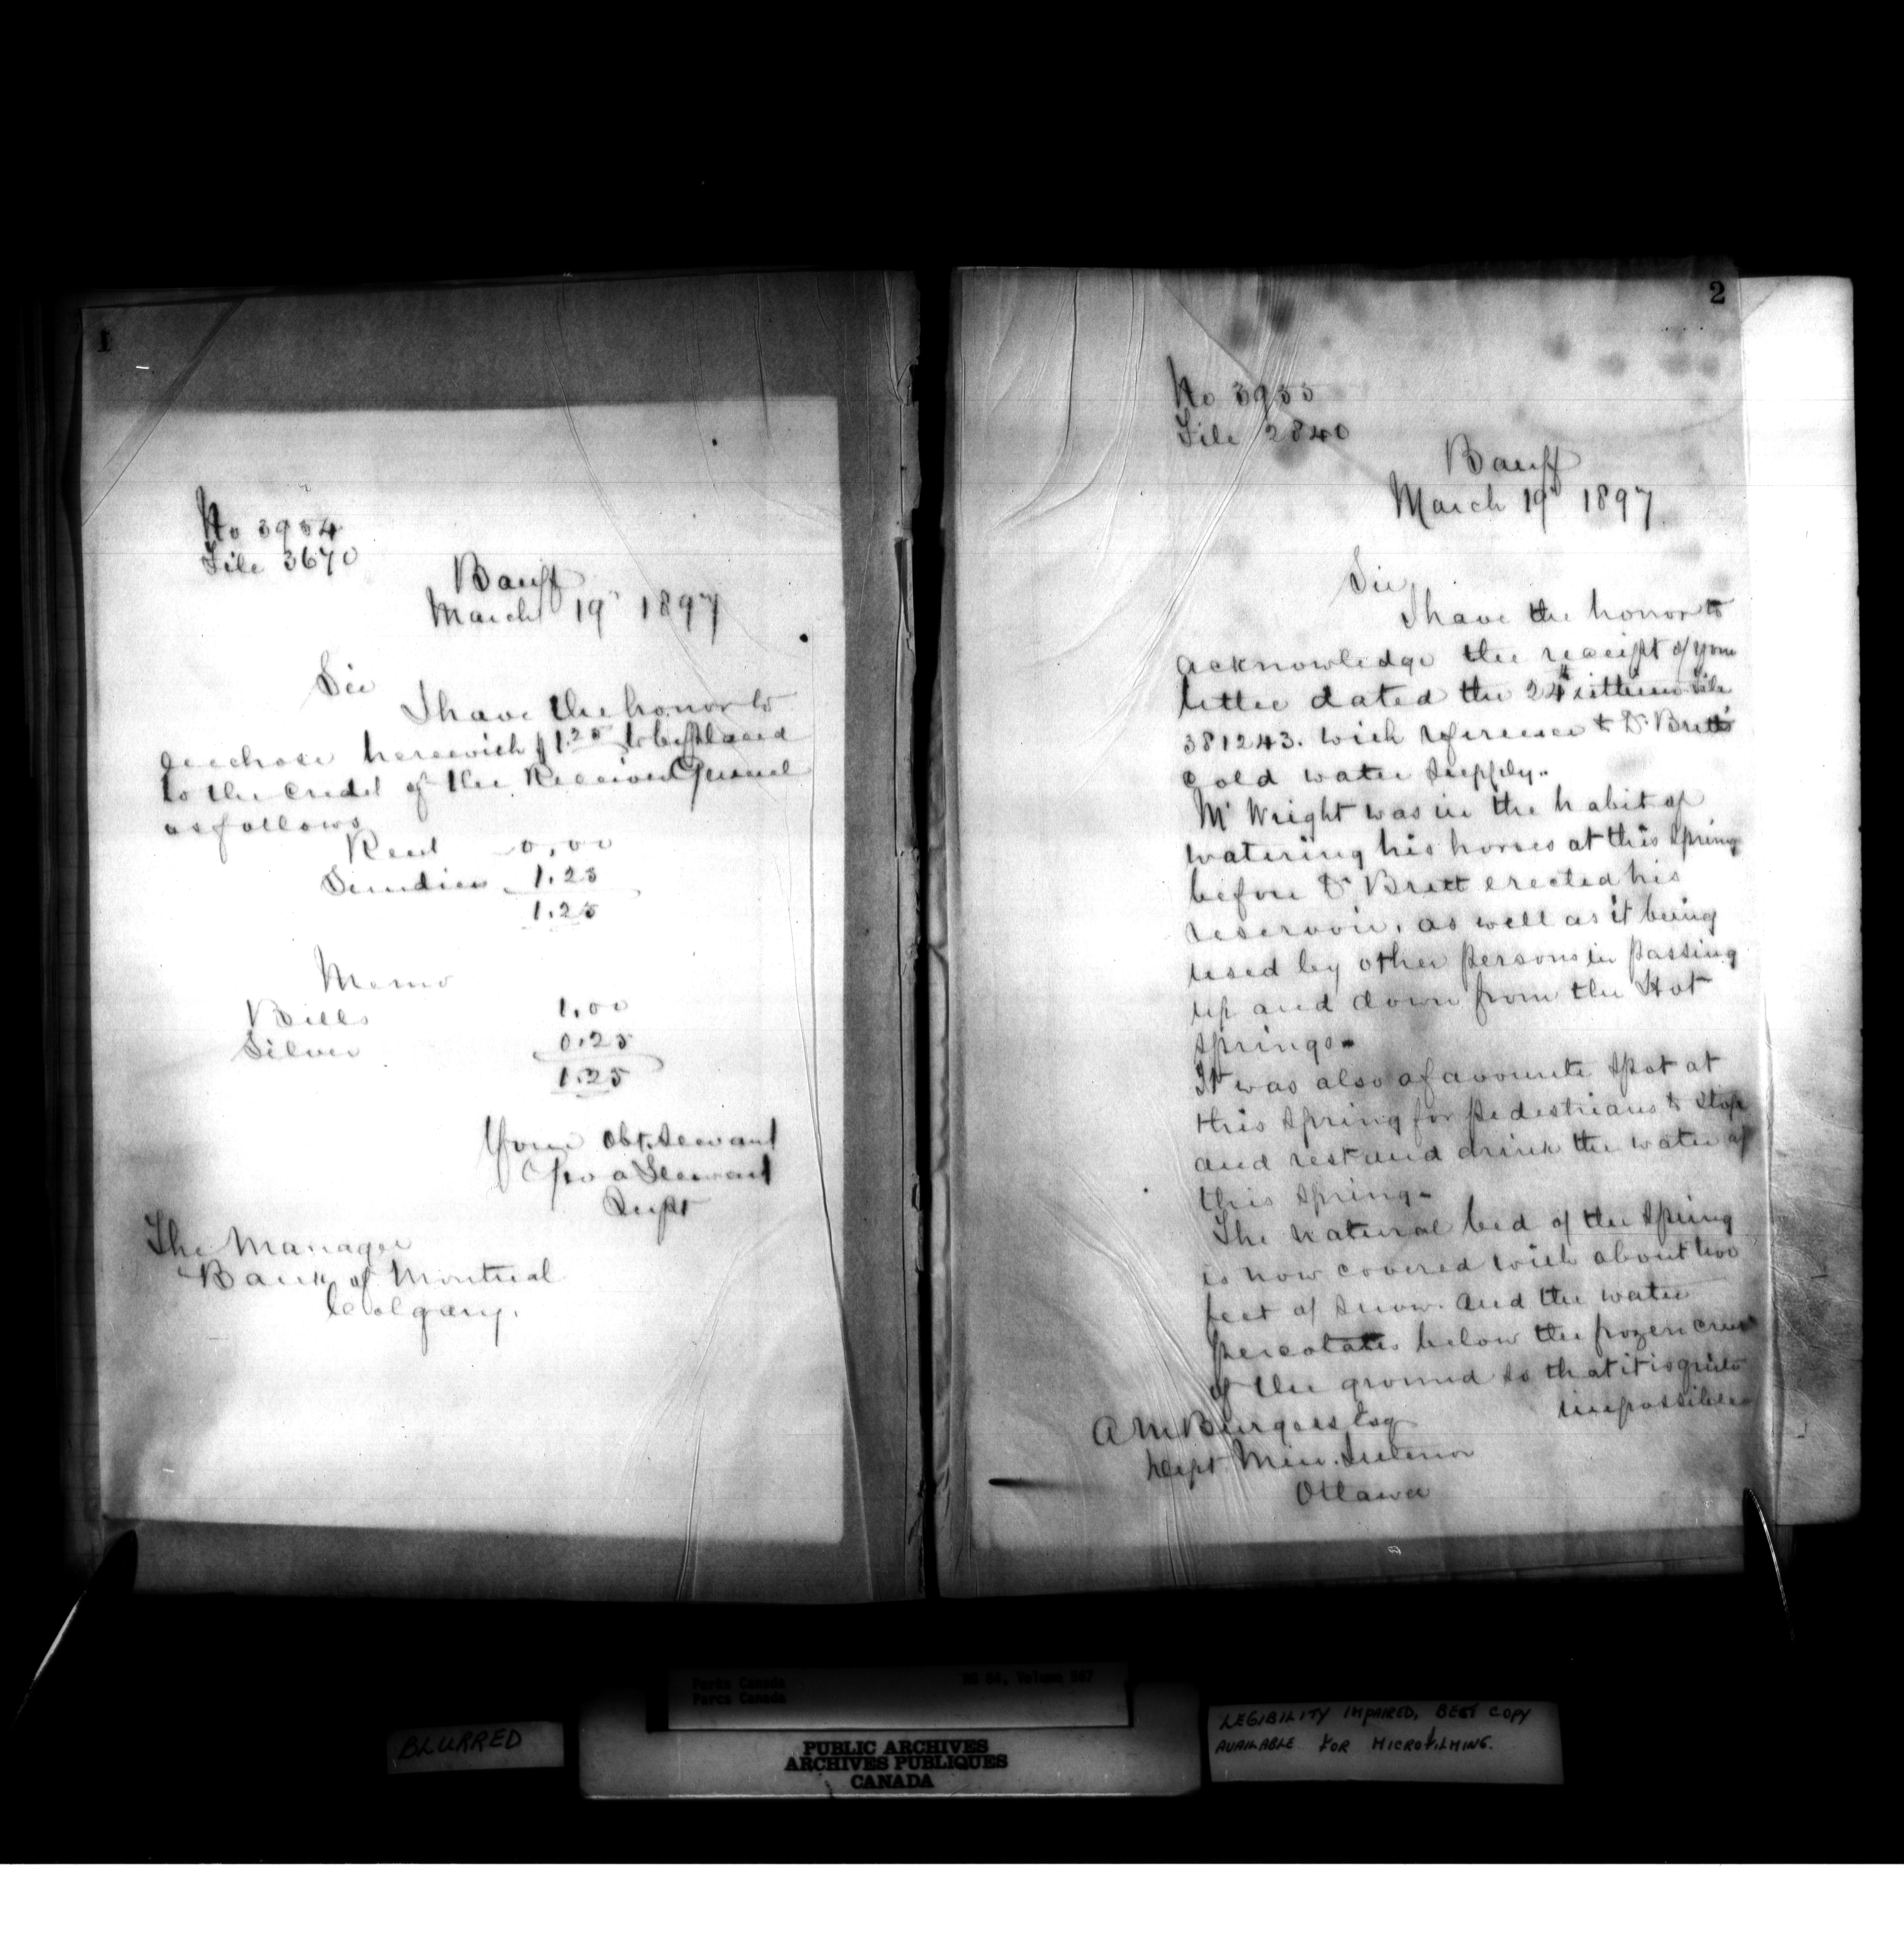 1
No 3954
File 3670
Banff
March 19" 1897
Sir
I have the honor to
enclose herewith $1.25 to be placed
to the credit of the Receiver General
as follows
Rent 0.00
Sundries 1.25
1.25
Memo
Bills 1.00
Silver 0.25
1.25
Your Obt. Servant
Geo A Stewart
Supt
The Manager
Bank of Montreal
Calgary.
2
No 3955
File 2840
Banff
March 19" 1897
Sir
I have the honor to
acknowledge the receipt of your
letter dated the 24th ultimo file
381243. with reference to Dr. Brett's
Cold water supply.
Mr Wright was in the habit of
watering his horses at this spring
before Dr Brett erected his
reservoir, as well as it being
used by other persons in passing
up and down from the Hot
springs.
It was also a favourite spot at
this spring for pedestrians to stop
and rest and drink the water of
this spring.
The natural bed of the spring
is now covered with about two
feet of snow. and the water
percolates below the frozen crust
of the ground so that it is quite
impossible
A M Burgess Esq
Dept. Min. Interior
Ottawa
Parks Canada
Parcs Canada
RG 84, Volume
BLURRED
PUBLIC ARCHIVES
ARCHIVES PUBLIQUES
CANADA
LEGIBILITY IMPAIRED, BEST COPY
AVAILABLE FOR MICROFILMING.